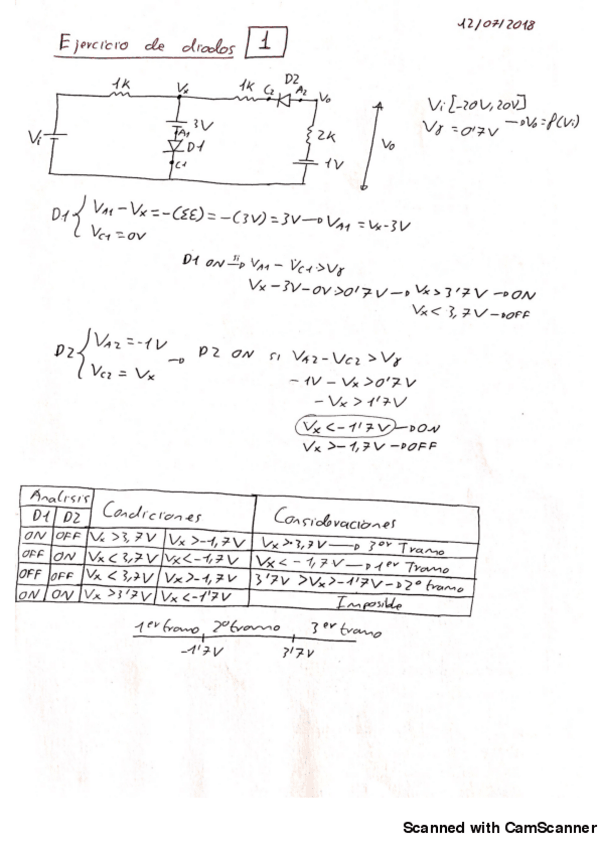 12/07/2018
Ejercicio de diodos 1
1K Vx 1K C2 D2 A2 Vo
Vi 3V A1 D1 C1 2K 1V Vo
Vi [-20V, 20V]
Vγ = 0'7V → Vo = f(Vi)
D1 { VA1 - Vx = -(Σε) = -(3V) = 3V → VA1 = Vx - 3V
VC1 = 0V
D1 ON si→ VA1 - VC1 > Vγ
Vx - 3V - 0V > 0'7V → Vx > 3'7V → ON
Vx < 3,7V → OFF
D2 { VA2 = -1V
VC2 = Vx
→ D2 ON si VA2 - VC2 > Vγ
-1V - Vx > 0'7V
-Vx > 1'7V
Vx < -1'7V → ON
Vx > -1,7V → OFF
Analisis
D1 D2 Condiciones Consideraciones
ON OFF Vx > 3,7V Vx > -1,7V Vx > 3,7V → 3er Tramo
OFF ON Vx < 3,7V Vx < -1,7V Vx < -1,7V → 1er Tramo
OFF OFF Vx < 3,7V Vx > -1,7V 3'7V > Vx > -1'7V → 2º tramo
ON ON Vx > 3'7V Vx < -1'7V Imposible
1er tramo 2º tramo 3er tramo
-1'7V 3'7V
Scanned with CamScanner